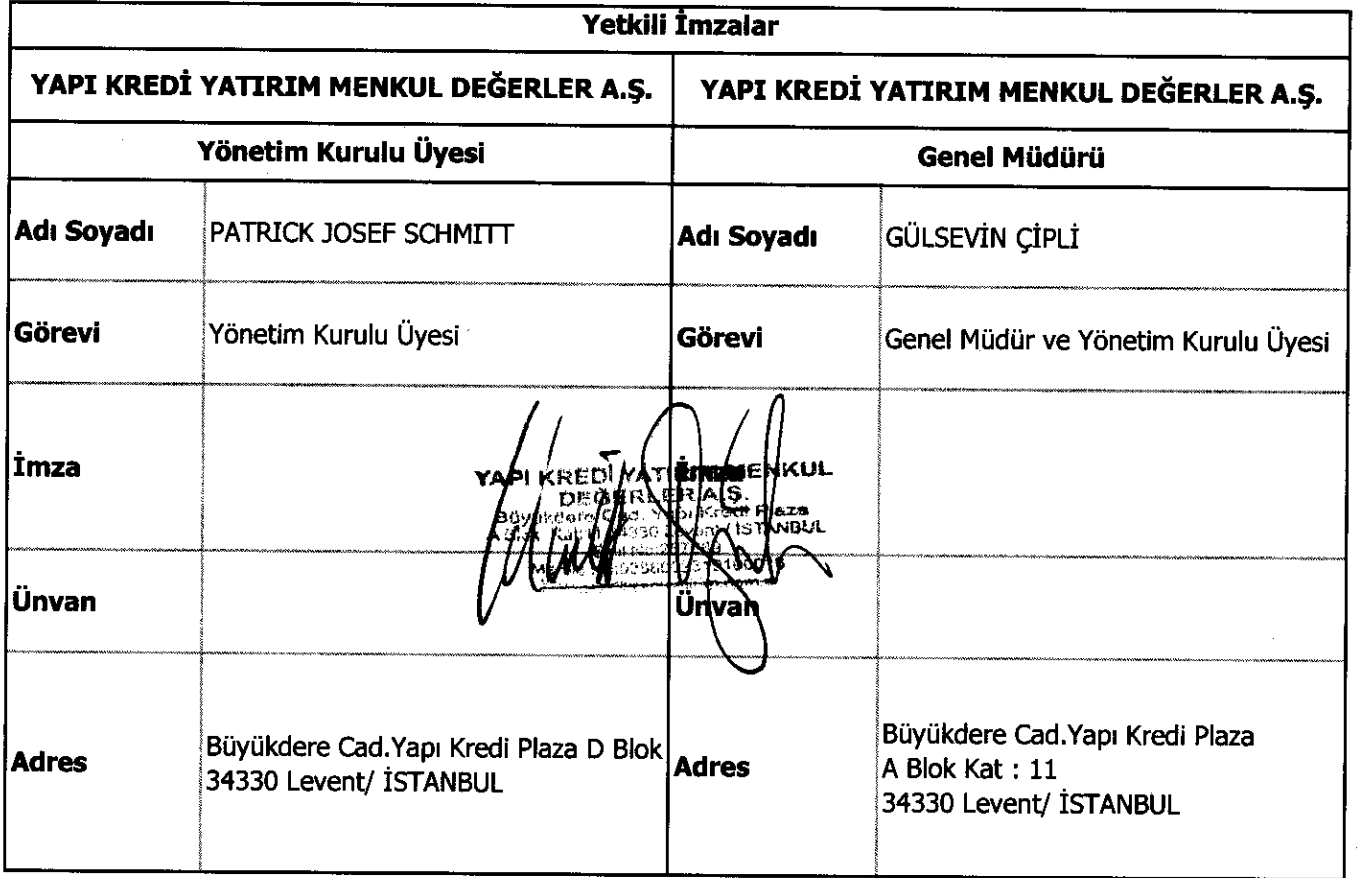 Yetkili İmzalar
YAPI KREDİ YATIRIM MENKUL DEĞERLER A.Ş.
YAPI KREDİ YATIRIM MENKUL DEĞERLER A.Ş.
Yönetim Kurulu Üyesi
Genel Müdürü
Adı Soyadı
PATRICK JOSEF SCHMITT
Adı Soyadı
GÜLSEVİN ÇİPLİ
Görevi
Yönetim Kurulu Üyesi
Görevi
Genel Müdür ve Yönetim Kurulu Üyesi
İmza
İmza
YAPI KREDİ YATIRIM MENKUL
DEĞERLER A.Ş.
Büyükdere Cad. Yapı Kredi Plaza
34330 Levent / İSTANBUL
Ünvan
Ünvan
Adres
Büyükdere Cad.Yapı Kredi Plaza D Blok
34330 Levent/ İSTANBUL
Adres
Büyükdere Cad.Yapı Kredi Plaza
A Blok Kat : 11
34330 Levent/ İSTANBUL